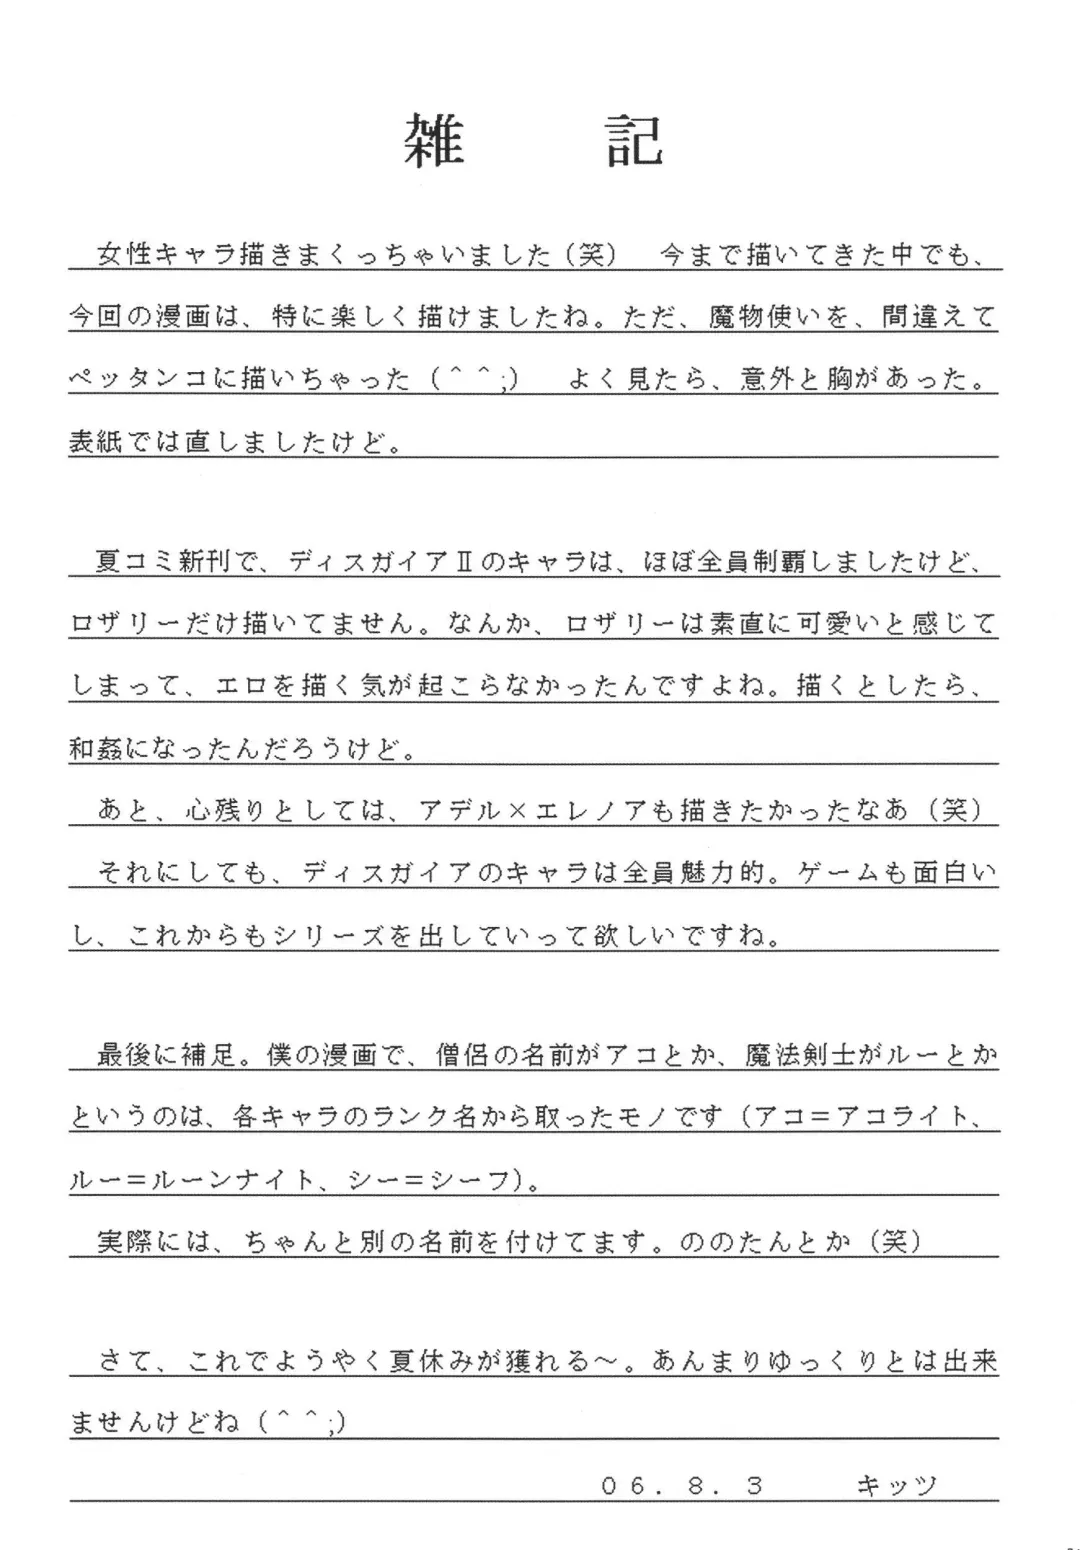 雑　記
女性キャラ描きまくっちゃいました（笑）　今まで描いてきた中でも、
今回の漫画は、特に楽しく描けましたね。ただ、魔物使いを、間違えて
ペッタンコに描いちゃった（＾＾;）　よく見たら、意外と胸があった。
表紙では直しましたけど。
夏コミ新刊で、ディスガイアⅡのキャラは、ほぼ全員制覇しましたけど、
ロザリーだけ描いてません。なんか、ロザリーは素直に可愛いと感じて
しまって、エロを描く気が起こらなかったんですよね。描くとしたら、
和姦になったんだろうけど。
あと、心残りとしては、アデル×エレノアも描きたかったなあ（笑）
それにしても、ディスガイアのキャラは全員魅力的。ゲームも面白い
し、これからもシリーズを出していって欲しいですね。
最後に補足。僕の漫画で、僧侶の名前がアコとか、魔法剣士がルーとか
というのは、各キャラのランク名から取ったモノです（アコ＝アコライト、
ルー＝ルーンナイト、シー＝シーフ）。
実際には、ちゃんと別の名前を付けてます。ののたんとか（笑）
さて、これでようやく夏休みが獲れる～。あんまりゆっくりとは出来
ませんけどね（＾＾;）
０６．８．３　キッツ